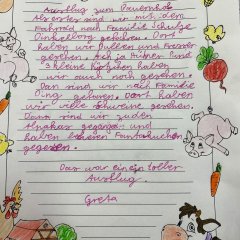 Ausflug zum Bauernhof
Als erstes sind wir mit dem
Fahrrad nach Familie Schulze
gefahren. Dort
haben wir Bullen und
gesehen. Ach ja Hühner und
3 kleine Kätzchen haben
wir auch noch gesehen.
Dan sind wir nach Familie
Ding gefahren dort haben
wir viele Schweine gesehen.
Dann sind wir zu den
Alpakas gegangen und
haben
gegessen.
Das war ein toller
Ausflug.
Greta